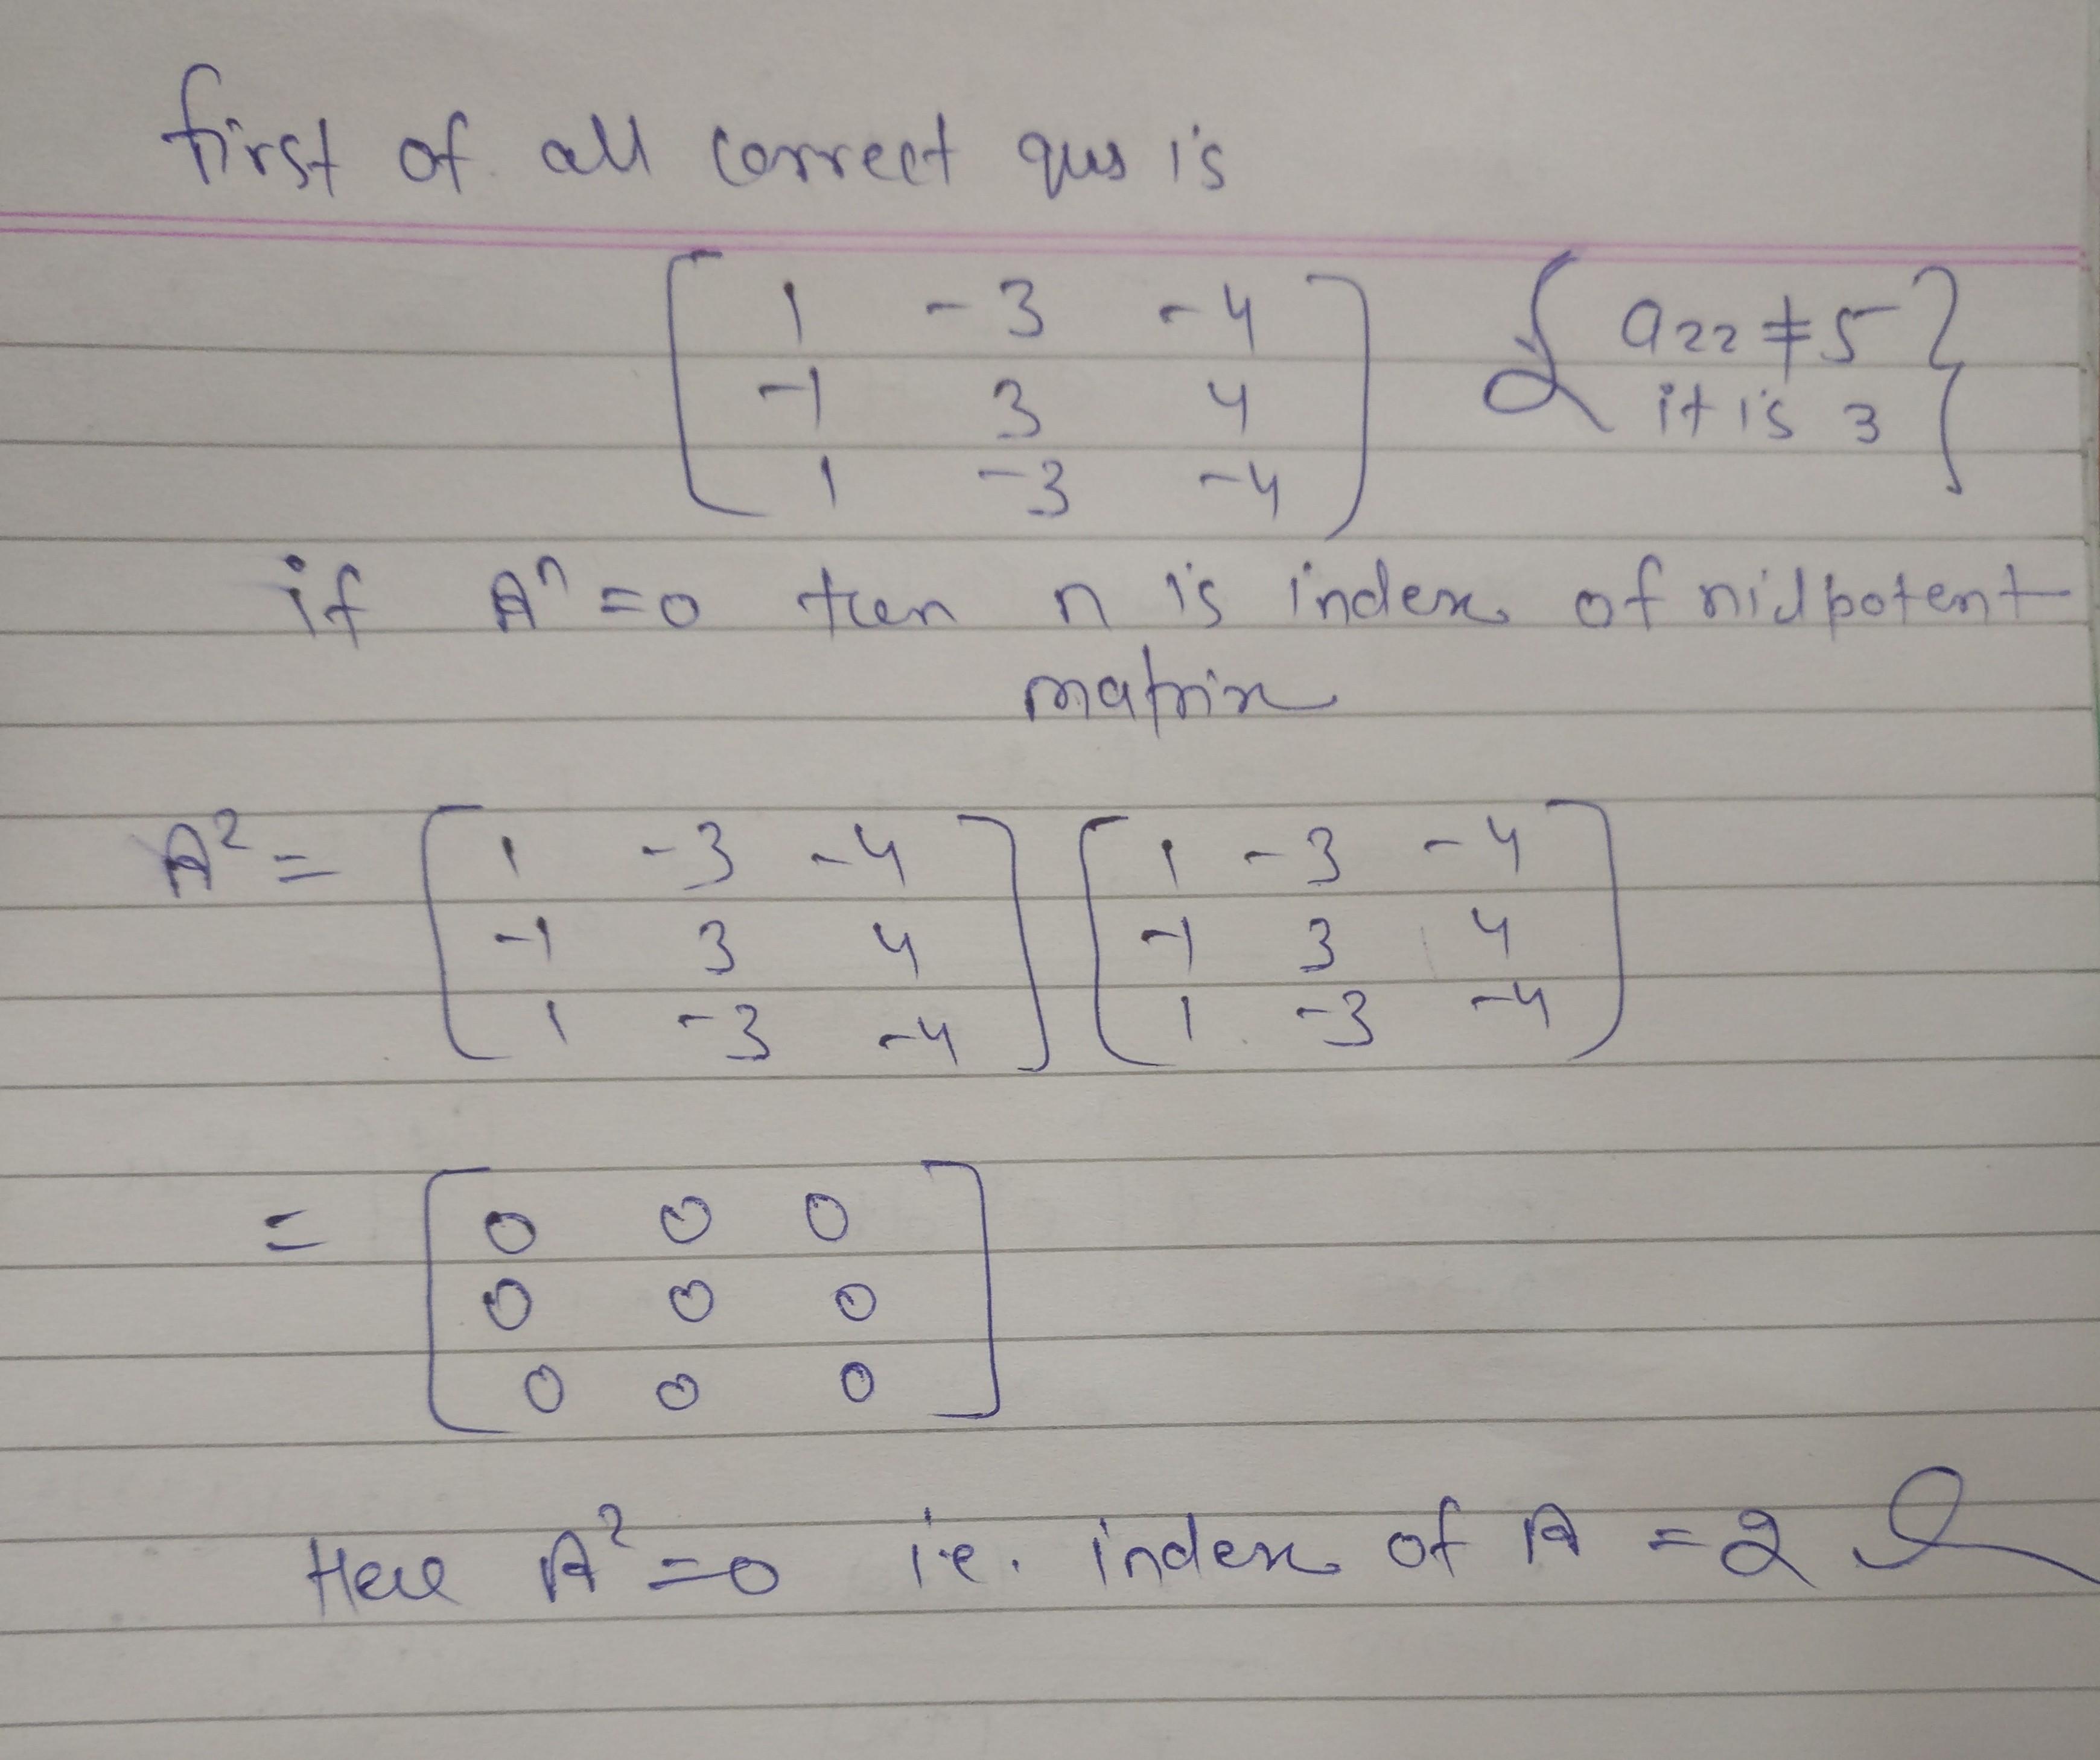 first of all correct qus is
[ 1 -3 -4 ] { a22 ≠ 5 }
[ -1 3 4 ] { it is 3 }
[ 1 -3 -4 ]
if Aⁿ = 0 then n is index of nilpotent
matrix
A² = [ 1 -3 -4 ] [ 1 -3 -4 ]
[ -1 3 4 ] [ -1 3 4 ]
[ 1 -3 -4 ] [ 1 -3 -4 ]
= [ 0 0 0 ]
[ 0 0 0 ]
[ 0 0 0 ]
Here A² = 0 i.e. index of A = 2